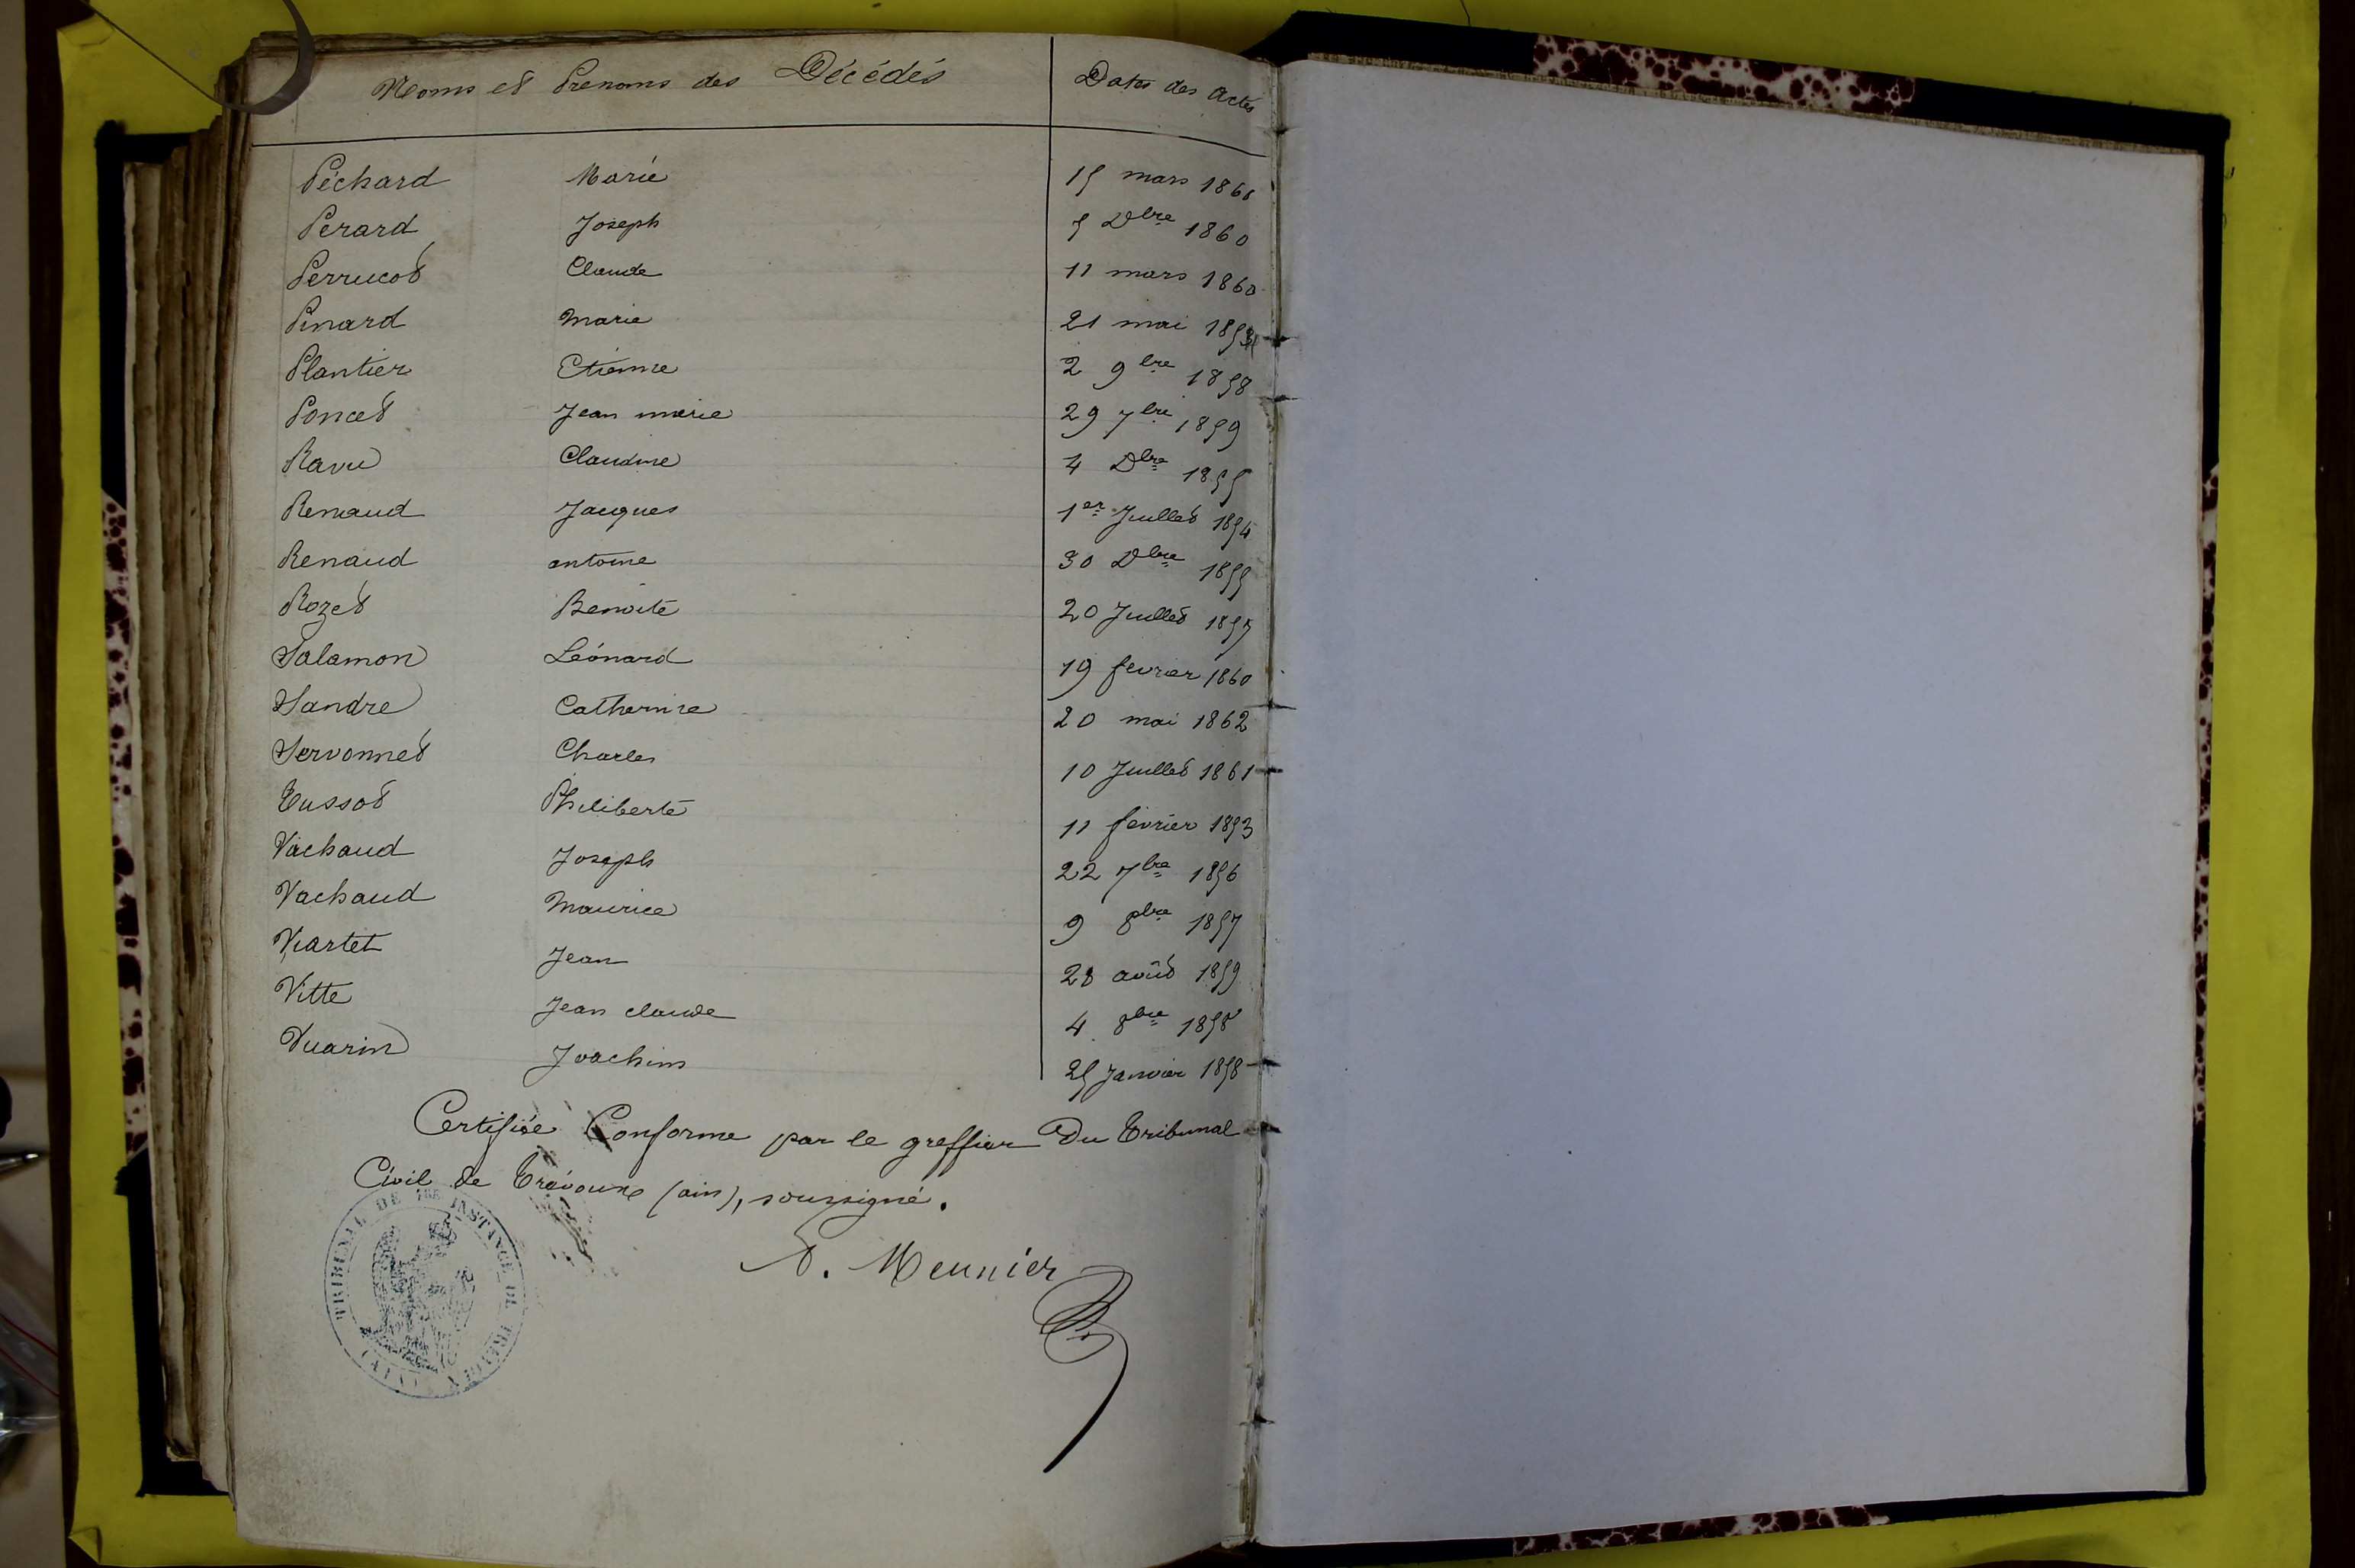 Noms et Prenoms des Décédés Dates des actes
Péchard Marie 15 mars 1861
Perard Joseph 5 Dbre 1860
Perrucot Claude 11 mars 1860
Pinard Marie 21 mai
Plantier Etienne 2 9bre 1858
Poncet Jean marie 29 7bre 1859
Ravu Claudine 4 Dbre 1855
Renaud Jacques 1er Juillet 1854
Renaud antoine 30 Dbre 1855
Rozet Benoite 20 Juillet 1857
Salamon Léonard 19 fevrier 1860
Sandre Catherine 20 mai 1862
Servonnet Charles 10 Juillet 1861
Tussot Philiberte 11 février 1853
Vachaud Joseph 22 7bre 1856
Vachaud Maurice 9 8bre 1857
Viartet Jean 28 août 1859
Vitte Jean claude 4 8bre 1858
Vuarin Joachim 25 Janvier 1858
Certifiée Conforme par le greffier Du Tribunal
Civil de Trévoux (ain), soussigné.
Meunier
TRIBUNAL DE 1RE INSTANCE DE TREVOUX (AIN)